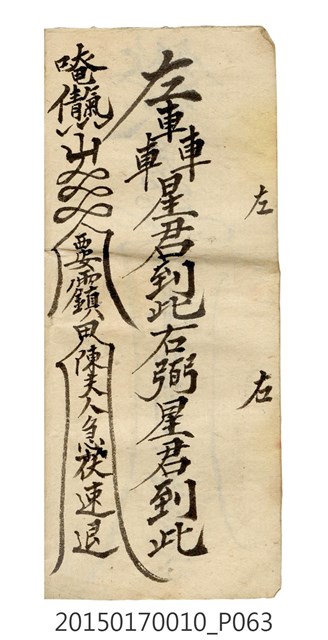 左
右
左轟星君到此右弼星君到此
唵
山
要鎮田陳夫人急夜速退
20150170010_P063